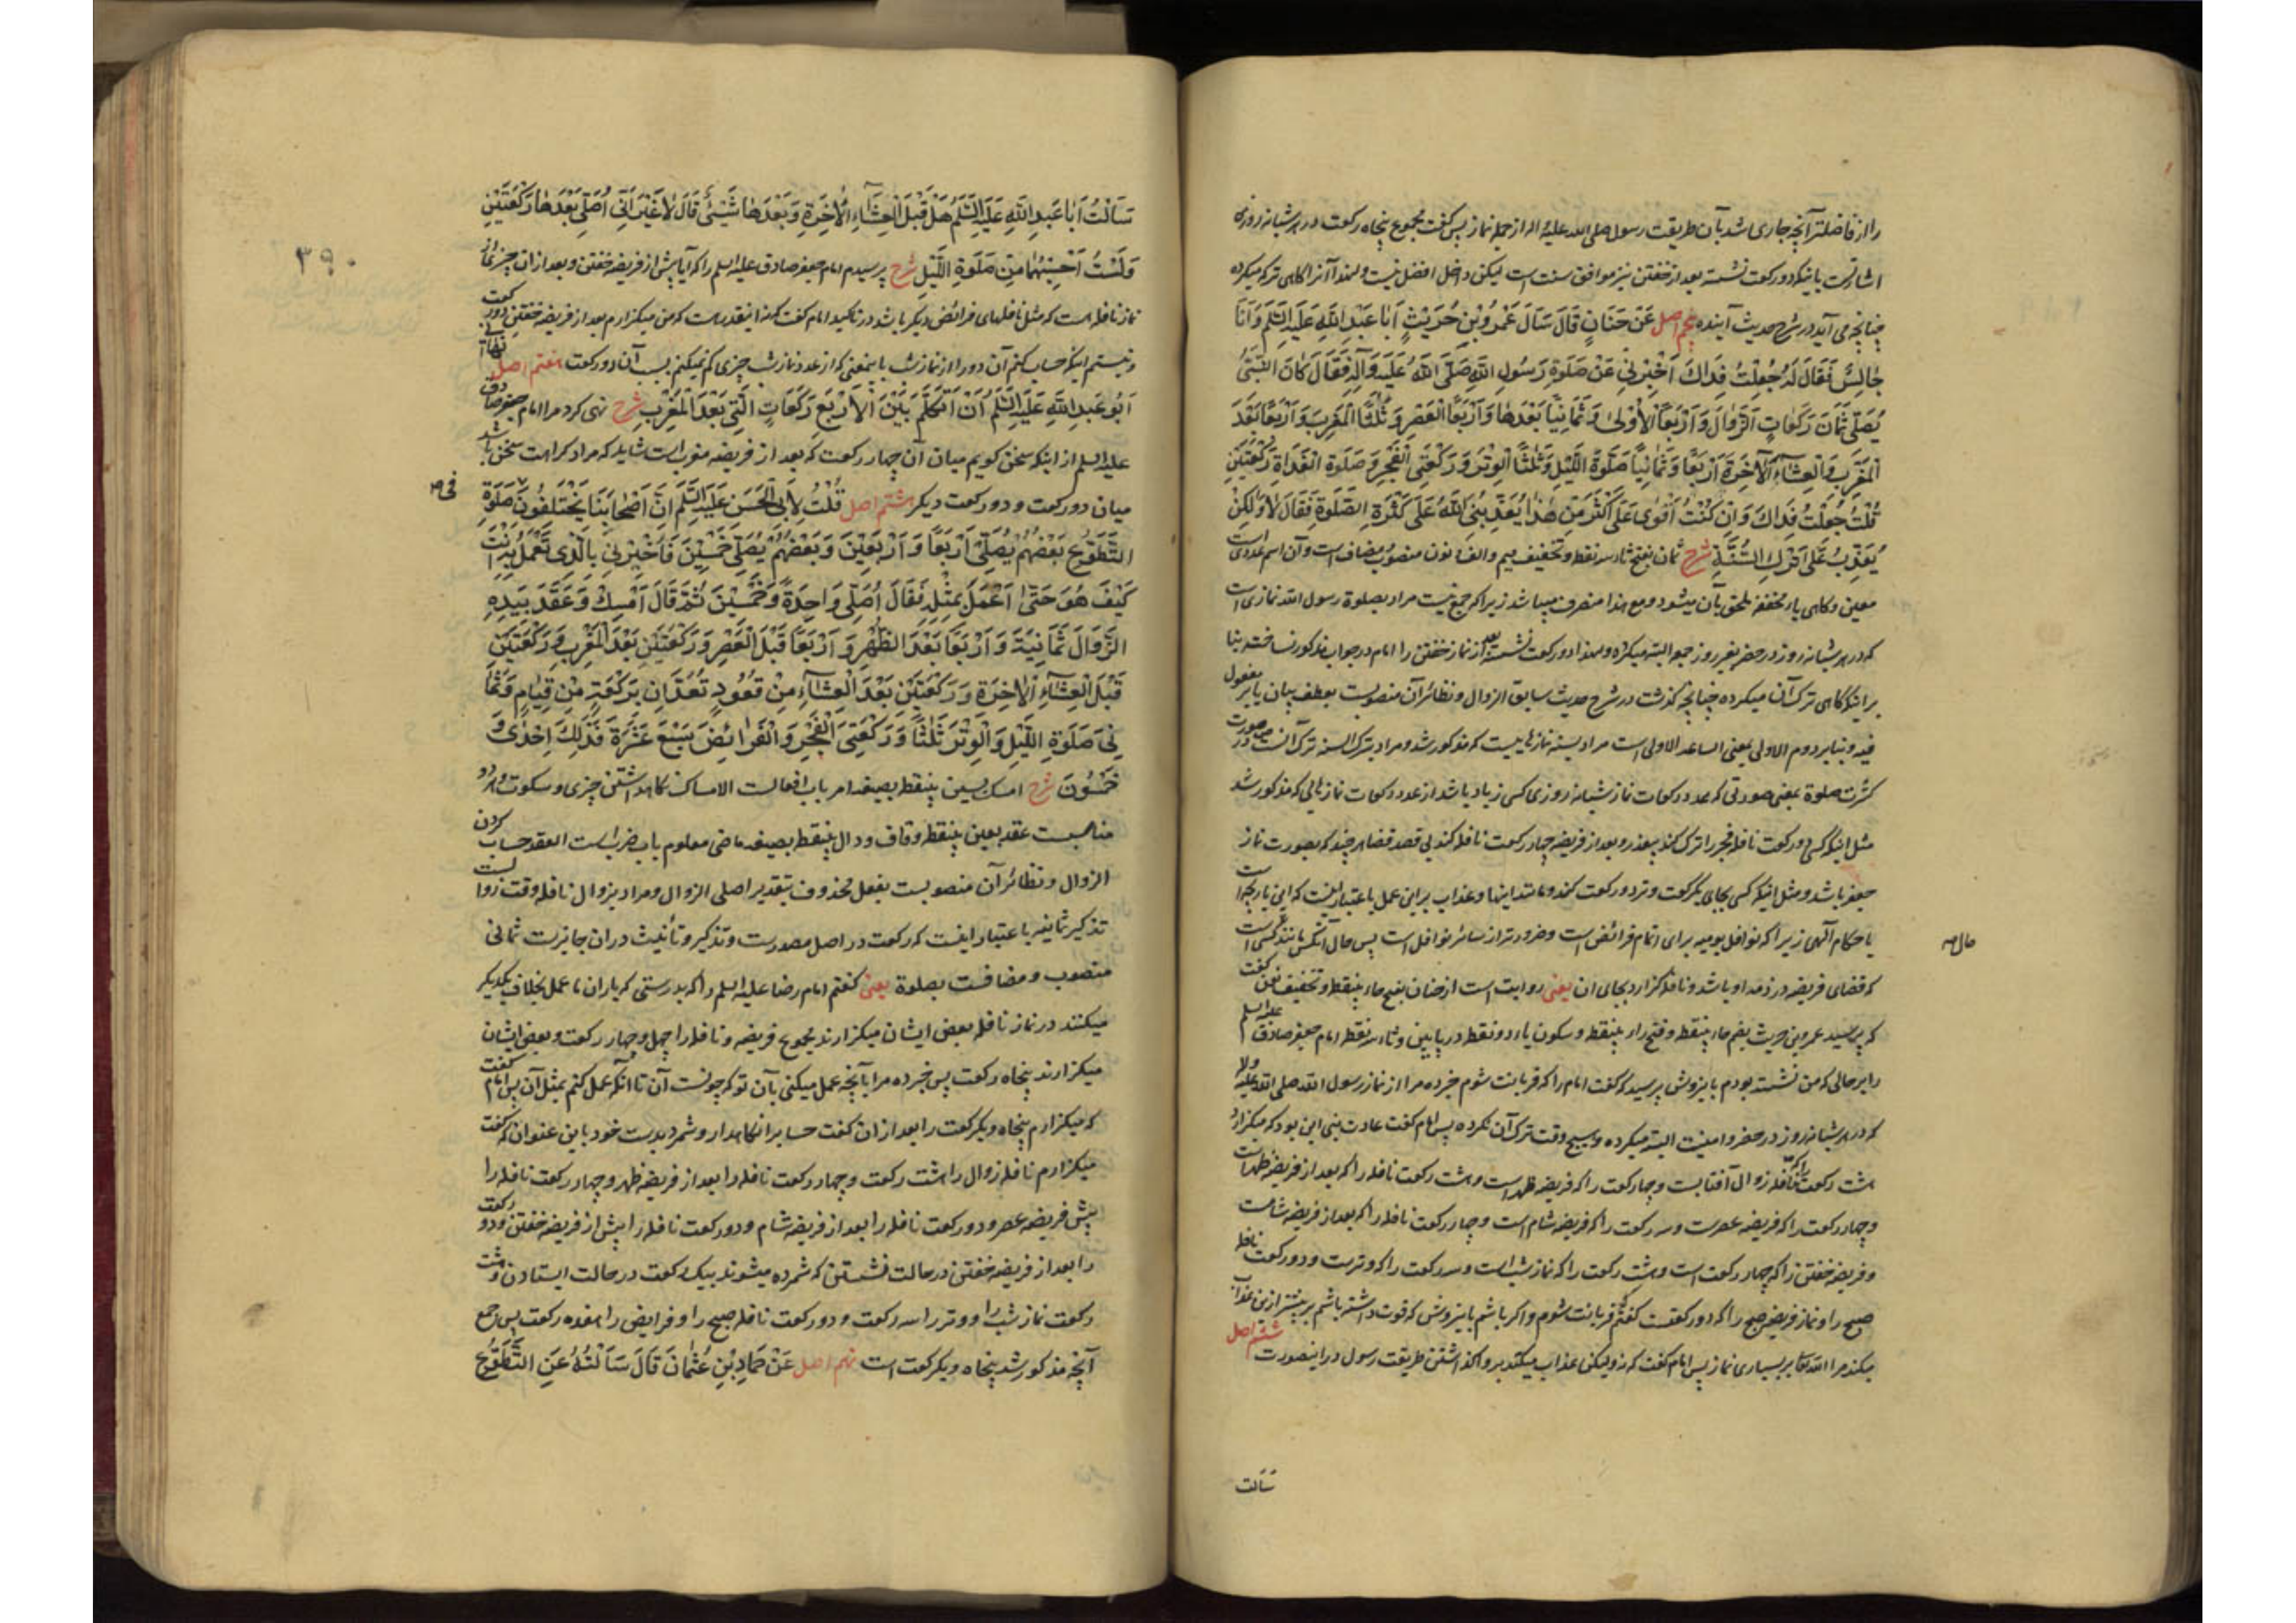 را از فاضلتر آنچه جاری شد بآن طریقت رسول صلی الله علیه و اله از جمله نماز پس گفت مجموع پنجاه رکعت در هر شبانه روزی
اشارتست باینکه دو رکعت نشسته بعد از خفتن نیز موافق سنت است لیکن داخل افضل نیست و لهذا آنرا گاهی ترک میکرده
چنانچه می آید در شرح حدیث آینده پنجم اصل عَنْ حَنَانٍ قَالَ سَأَلَ عَمْرُو بْنُ حُرَيْثٍ أَبَا عَبْدِ اللَّهِ عَلَيْهِ السَّلَمُ وَأَنَا
جَالِسٌ فَقَالَ لَهُ جُعِلْتُ فِدَاكَ أَخْبِرْنِي عَنْ صَلَوةِ رَسُولِ اللَّهِ صَلَّى اللَّهُ عَلَيْهِ وَآلِهِ فَقَالَ كَانَ النَّبِيُّ
يُصَلِّي ثَمَانَ رَكَعَاتٍ الزَّوَالَ وَأَرْبَعًا الْأُولَى وَثَمَانِيًا بَعْدَهَا وَأَرْبَعًا الْعَصْرَ وَثَلَثًا الْمَغْرِبَ وَأَرْبَعًا بَعْدَ
الْمَغْرِبِ وَالْعِشَاءَ الْآخِرَةَ أَرْبَعًا وَثَمَانِيًا صَلَوةَ اللَّيْلِ وَثَلَثًا الْوِتْرَ وَرَكْعَتَيِ الْفَجْرِ وَصَلَوةَ الْغَدَاةِ رَكْعَتَيْنِ
قُلْتُ جُعِلْتُ فِدَاكَ وَإِنْ كُنْتُ أَقْوَى عَلَى أَكْثَرَ مِنْ هَذَا يُعَذِّبُنِي اللَّهُ عَلَى كَثْرَةِ الصَّلَوةِ فَقَالَ لَا وَلَكِنْ
يُعَذِّبُ عَلَى تَرْكِ السُّنَّةِ شرح ثمان بفتح ثاء سه نقطه و تخفیف میم و الف و نون منصوب و مضاف است و آن اسم عددی است
معین و گاهی یاء مخففه ملحق بآن میشود و مع هذا منصرف میباشد زیرا که جمع نیست مراد بصلوة رسول الله نمازی است
که در هر شبانه روز در حضر بغیر روز جمعه البته میکرده و لهذا دو رکعت نشسته بعد از نماز خفتن را امام در جواب مذکور نساخته بنا
بر اینکه گاهی ترک آن میکرده چنانچه گذشت در شرح حدیث سابق الزوال و نظائر آن منصوبست بعطف بیان یا بر مفعول
فیه و بنا بر دوم الاولی بمعنی الساعه الاولی است مراد بسنة نمازهاییست که مذکور شد و مراد بترک السنه ترک آنست در صورت
کثرت صلوة بمعنی صورتی که عدد رکعات نماز شبانه روزی کسی زیاد باشد از عدد رکعات نمازهایی که مذکور شد
مثل اینکه کسی دو رکعت نافله فجر را ترک کند بیعذر و بعد از فریضه چهار رکعت نافله کند بی قصد قضا هر چند که بصورت نماز
جعفر باشد و مثل اینکه کسی بجای یکرکعت وتر دو رکعت کند و مانند اینها و عذاب بر این عمل باعتبار اینست که این بازیچه است
باحکام الهی زیرا که نوافل یومیه برای اتمام فرائض است و ضرورتر از سائر نوافل است پس حال آنکس مانند کسی است
حال صه
که قضای فریضه در ذمه او باشد و نافله گزارد بجای ان یعنی روایت است از حنان بفتح حاء بینقطه و تخفیف نون گفت
که پرسید عمرو بن حریث بضم حاء بینقطه و فتح راء بینقطه و سکون یاء دو نقطه در پایین و ثاء سه نقطه امام جعفر صادق علیه السلم
را بر حالی که من نشسته بودم باین روش پرسید که گفت امام را که قربانت شوم خبر ده مرا از نماز رسول الله صلی الله علیه و آله
که در هر شبانه روز در حضر و امنیت البته میکرده و هیچ وقت ترک آن نکرده پس امام گفت عادت نبی این بود که میگزارد
هشت رکعت را که نافله زوال آفتابست و چهار رکعت را که فریضه ظهر است و هشت رکعت نافله را که بعد از فریضه ظهر است
و چهار رکعت را که فریضه عصرست و سه رکعت را که فریضه شام است و چهار رکعت نافله را که بعد از فریضه شامست
و فریضه خفتن را که چهار رکعت است و هشت رکعت را که نماز شب است و سه رکعت را که وترست و دو رکعت نافله
صبح را و نماز فریضه صبح را که دو رکعتست گفتم قربانت شوم و اگر باشم باین روش که قوت داشته باشم بر بیشتر از این عذاب
میکند مرا الله تعالی بر بسیاری نماز پس امام گفت که نه ولیکن عذاب میکند بر واگذاشتن طریقت رسول در اینصورت ششم اصل
سَأَلْتُ
٣٩٠
سَأَلْتُ أَبَا عَبْدِ اللَّهِ عَلَيْهِ السَّلَمُ هَلْ قَبْلَ الْعِشَاءِ الْآخِرَةِ وَبَعْدَهَا شَيْءٌ قَالَ لَا غَيْرَ أَنِّي أُصَلِّي بَعْدَهَا رَكْعَتَيْنِ
وَلَسْتُ أَحْسِبُهُمَا مِنْ صَلَوةِ اللَّيْلِ شرح پرسیدم امام جعفر صادق علیه السلم را که آیا پیش از فریضه خفتن و بعد از ان چیزی از
نماز نافله است که مثل نافلهای فرائض دیگر باشد در تاکید امام گفت که نه اینقدر هست که من میگزارم بعد از فریضه خفتن دو رکعت
و نیستم اینکه حساب کنم آن دو را از نماز شب باینمعنی که از عدد نماز شب چیزی کم نمیکنم بسبب آن دو رکعت هفتم اصل نَهَانِي
أَبُو عَبْدِ اللَّهِ عَلَيْهِ السَّلَمُ أَنْ أَتَكَلَّمَ بَيْنَ الْأَرْبَعِ رَكَعَاتٍ الَّتِي بَعْدَ الْمَغْرِبِ شرح نهی کرد مرا امام جعفر صادق
علیه السلم از اینکه سخن گویم میان آن چهار رکعت که بعد از فریضه مغرب است شاید که مراد کراهت سخن باشد
میان دو رکعت و دو رکعت دیگر هشتم اصل قُلْتُ لِأَبِي الْحَسَنِ عَلَيْهِ السَّلَمُ إِنَّ أَصْحَابَنَا يَخْتَلِفُونَ صَلَوةِ
فی صه
التَّطَوُّعِ بَعْضُهُمْ يُصَلِّي أَرْبَعًا وَأَرْبَعِينَ وَبَعْضُهُمْ يُصَلِّي خَمْسِينَ فَأَخْبِرْنِي بِالَّذِي تَعْمَلُ بِهِ أَنْتَ
كَيْفَ هُوَ حَتَّى أَعْمَلَ بِمِثْلِهِ فَقَالَ أُصَلِّي وَاحِدَةً وَخَمْسِينَ ثُمَّ قَالَ أَمْسِكْ وَعَقَدَ بِيَدِهِ
الزَّوَالَ ثَمَانِيَةً وَأَرْبَعًا بَعْدَ الظُّهْرِ وَأَرْبَعًا قَبْلَ الْعَصْرِ وَرَكْعَتَيْنِ بَعْدَ الْمَغْرِبِ وَرَكْعَتَيْنِ
قَبْلَ الْعِشَاءِ الْآخِرَةِ وَرَكْعَتَيْنِ بَعْدَ الْعِشَاءِ مِنْ قُعُودٍ تُعَدَّانِ بِرَكْعَةٍ مِنْ قِيَامٍ وَثَمَا
نِيَ صَلَوةِ اللَّيْلِ وَالْوِتْرَ ثَلَثًا وَرَكْعَتَيِ الْفَجْرِ وَالْفَرَائِضَ سَبْعَ عَشْرَةَ فَذَلِكَ إِحْدَى وَ
خَمْسُونَ شرح امسک بسین بینقطه بصیغه امر باب افعالست الامساک نگاهداشتن چیزی و سکوت و هر دو
مناسبست عقد بعین بینقطه و قاف و دال بینقطه بصیغه ماضی معلوم باب ضرب است العقد حساب کردن
الزوال و نظائر آن منصوبست بفعل محذوف بتقدیر اصلی الزوال و مراد بزوال نافله وقت زوالست
تذکیر ثمانیه باعتبار اینست که رکعت در اصل مصدرست و تذکیر و تأنیث در ان جایزست ثمانی
منصوب و مضافست بصلوة یعنی گفتم امام رضا علیه السلم را که بدرستی که یاران ما عمل بخلاف یکدیگر
میکنند در نماز نافله بعض ایشان میگزارند مجموع فریضه و نافله را چهل و چهار رکعت و بعض ایشان
میگزارند پنجاه رکعت پس خبر ده مرا بآنچه عمل میکنی بآن تو که چونست آن تا آنکه عمل کنم بمثل آن پس امام گفت
که میگزارم پنجاه و یکرکعت را بعد از ان گفت حساب را نگاهدار و شمرد بدست خود باین عنوان که گفت
میگزارم نافله زوال را هشت رکعت و چهار رکعت نافله را بعد از فریضه ظهر و چهار رکعت نافله را
پیش فریضه عصر و دو رکعت نافله را بعد از فریضه شام و دو رکعت نافله را پیش از فریضه خفتن و دو رکعت
را بعد از فریضه خفتن در حالت نشستن که شمرده میشوند بیک رکعت در حالت ایستادن و هشت
رکعت نماز شب را و وتر را سه رکعت و دو رکعت نافله صبح را و فرایض را هفده رکعت پس جمع
آنچه مذکور شد پنجاه و یکرکعت است نهم اصل عَنْ حَمَّادِ بْنِ عُثْمَانَ قَالَ سَأَلْتُهُ عَنِ التَّطَوُّعِ